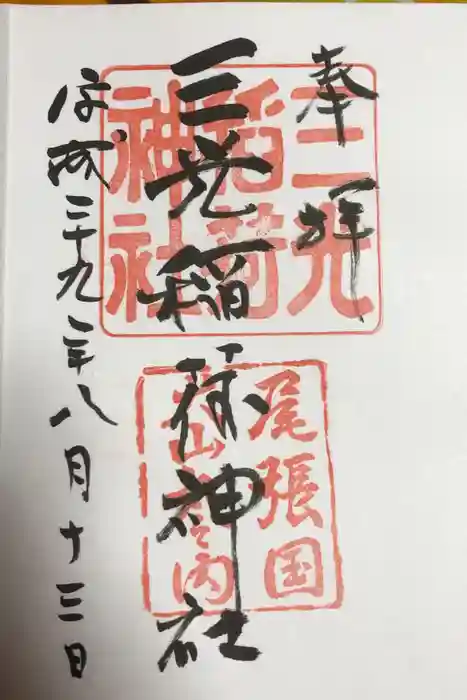 奉拝
三光稲荷神社
平成二十九年八月十三日
三光
稲荷
神社
尾張国
犬山城之内